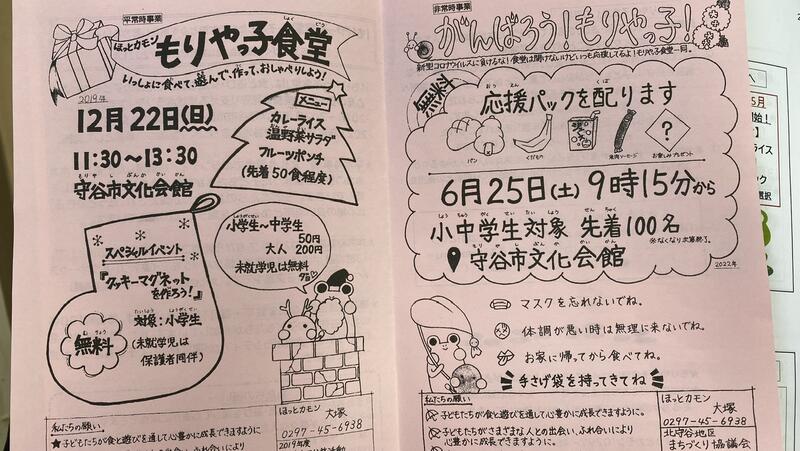 平常時事業
ほっとカモン
もりやっ子食堂
いっしょに食べて、遊んで、作って、おしゃべりしよう！
2019年
12月22日(日)
11:30～13:30
守谷市文化会館
メニュー
カレーライス
温野菜サラダ
フルーツポンチ
(先着50食程度)
スペシャルイベント
『クッキーマグネット
を作ろう！』
対象：小学生
(未就学児は
保護者同伴)
無料
小学生～中学生
50円
大人 200円
未就学児は無料
私たちの願い
★子どもたちが食と遊びを通して心豊かに成長できますように
ほっとカモン 大塚
0297-45-6938
2019年度
非常時事業
がんばろう！もりやっ子！
新型コロナウイルスに負けるな！食堂は開けないけどいつも応援してるよ！もりやっ子食堂一同。
無料
応援パックを配ります
パン
くだもの
魚肉ソーセージ
お楽しみプレゼント
6月25日(土) 9時15分から
小中学生対象 先着100名
※なくなり次第終了。
守谷市文化会館
2022年
マスクを忘れないでね。
体調が悪い時は無理に来ないでね。
お家に帰ってから食べてね。
手さげ袋を持ってきてね
私たちの願い
子どもたちが食と遊びを通して心豊かに成長できますように。
子どもたちがさまざまな人との出会い、ふれ合いにより
心豊かに成長できますように。
ほっとカモン 大塚
0297-45-6938
北守谷地区
まちづくり協議会